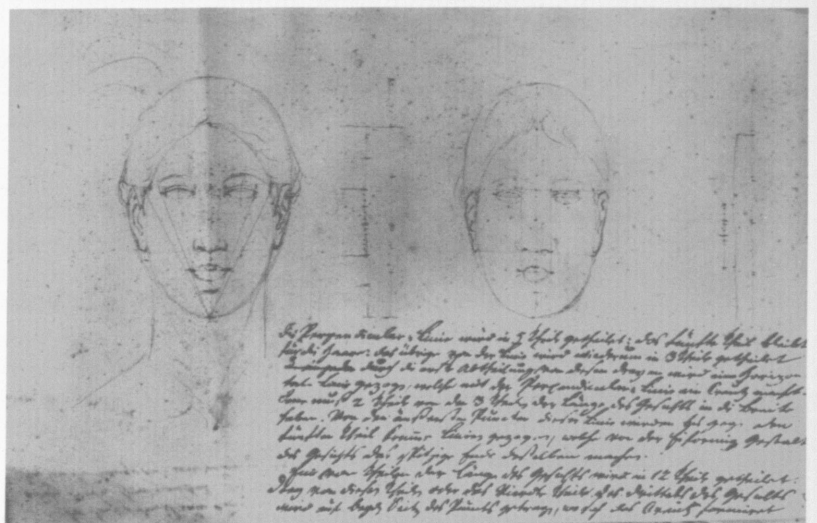 Die Perpendicular-Linie wird in 5 Theile getheilt: das fünfte Theil bleibt
für die Haare: das übrige von der Linie wird wiederum in 3 Theile getheilt
durch die erste Abtheilung von diesen dreyen wird eine Horizon
tal Linie gezogen, welche mit der Perpendicular Linie ein Creutz macht.
muß 2 Theile von den 3 Theilen der Länge des Gesichts in die Breite
haben. Von den äußersten Puncten dieser Linie werden bis
fünften Theil krumme Linien gezogen, welche von der Eyförmig Gestalt
des Gesichts das spitzige Ende desselben machen.
Theilen der Länge des Gesichts wird in 12 Theile getheilt:
drey von diesen Theilen, oder das Vierte Theil des Drittheils des Gesichts
wird auf beyde Seiten des Puncts getragen, wo sich das Creutz formiret